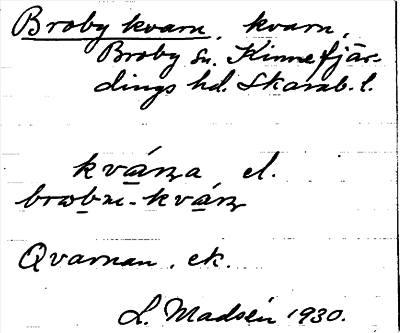 Broby kvarn, kvarn,
Broby sn. Kinnefjär-
dings hd. Skarab. l.
el.
Qvarnan, ek.
L. Madsén 1930.